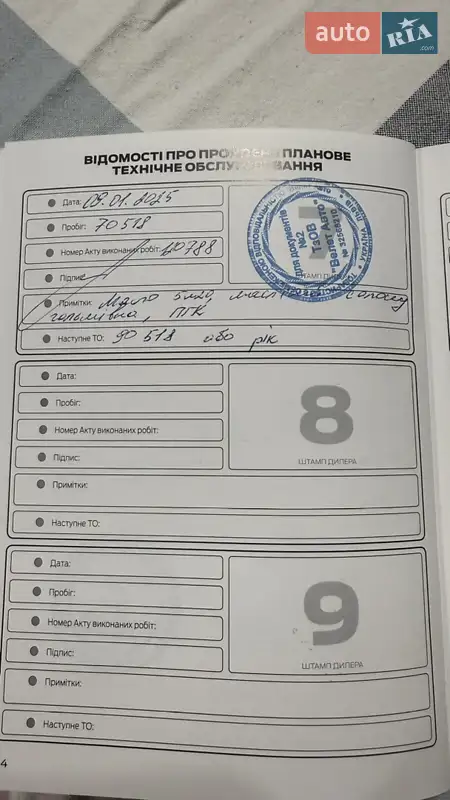 auto RIA .com
ВІДОМОСТІ ПРО ПРОЙДЕНЕ ПЛАНОВЕ
ТЕХНІЧНЕ ОБСЛУГОВУВАННЯ
Дата: 09.01.2025
Пробіг: 70518
Номер Акту виконаних робіт: 20788
Підпис:
Для документів
№2
ТзОВ
"Велет Авто"
№ 32568410
Примітки: Масло 5w20,
гальмівна, ПГК
Наступне ТО: 90 518 або рік
Дата:
Пробіг:
Номер Акту виконаних робіт:
Підпис:
8
ШТАМП ДИЛЕРА
Примітки:
Наступне ТО:
Дата:
Пробіг:
Номер Акту виконаних робіт:
Підпис:
9
ШТАМП ДИЛЕРА
Примітки:
Наступне ТО:
4